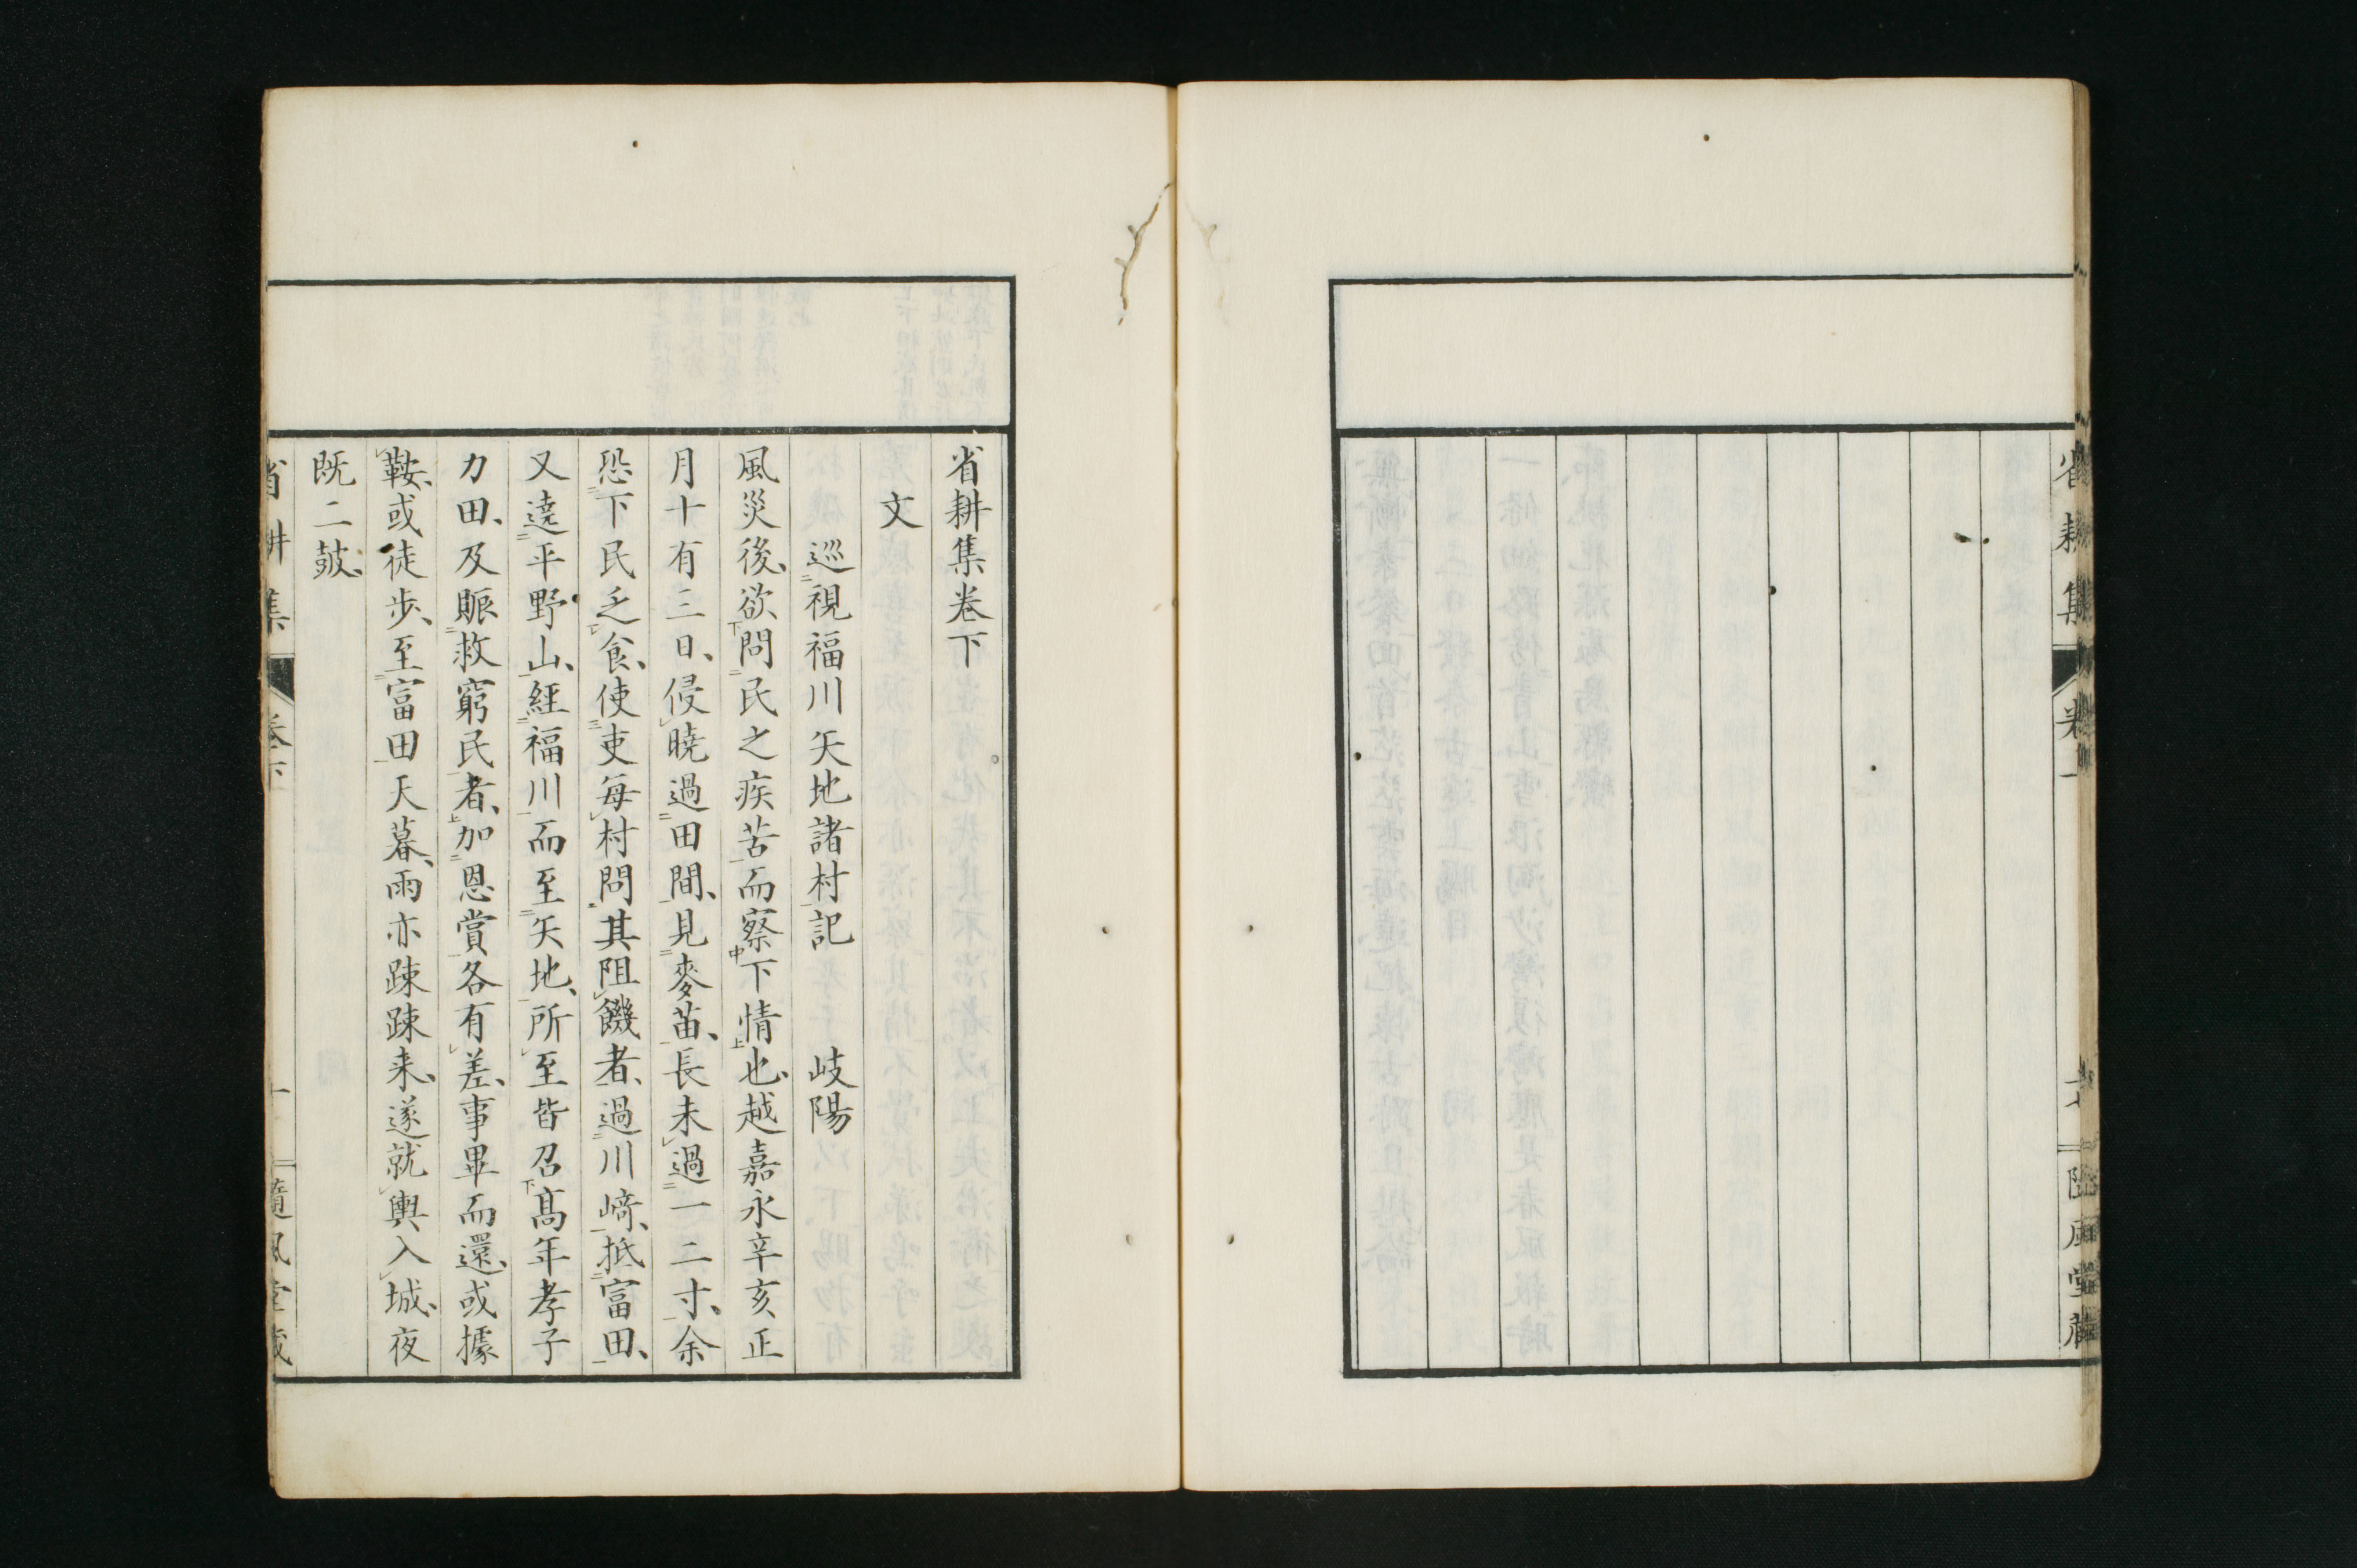 省耕集卷下
文
巡視福川矢地諸村記　岐陽
風災後、欲問民之疾苦而察下情也、越嘉永辛亥正
月十有三日、侵曉過田間、見麥苗、長未過一二寸、余
恐下民乏食、使吏每村問其阻饑者、過川﨑、抵富田、
又遶平野山、經福川而至矢地、所至皆召髙年孝子
力田、及賑救窮民者、加恩賞各有差、事畢而還、或據
鞍、或徒步、至富田天暮、雨亦踈踈来、遂就輿入城、夜
既二皷、
省耕集　卷下　一　隨風堂藏